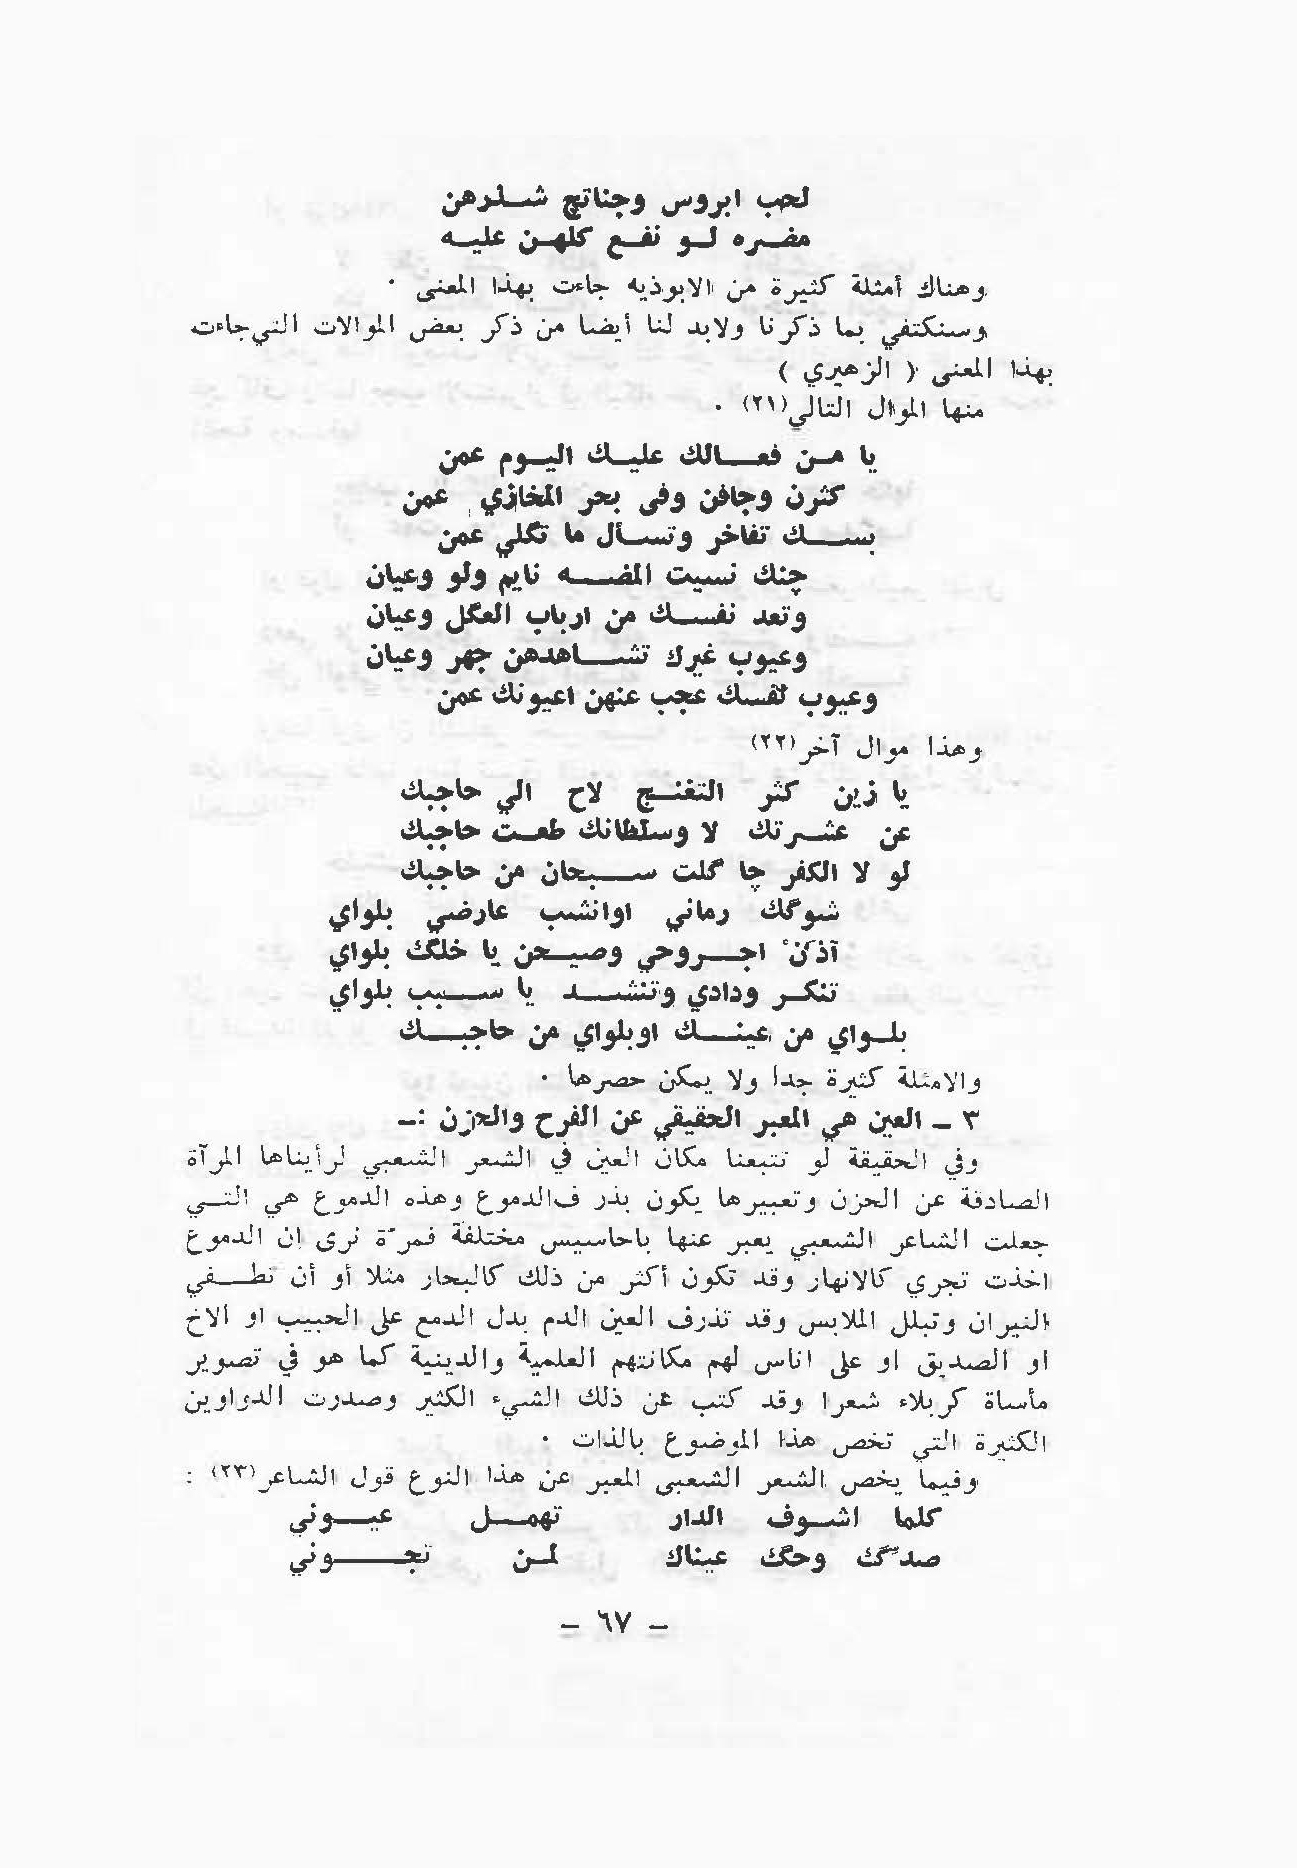 لحب ابروس وجناتچ شلرهن
مضره لو نفع كلهن عليه
وهناك أمثلة كثيرة من الابوذيه جاءت بهذا المعنى ٠
وسنكتفي بما ذكرنا ولابد لنا أيضا من ذكر بعض الموالات التي جاءت
بهذا المعنى ( الزهيري )
منها الموال التالي(٢١) ٠
يا من فعالك عليك اليوم عمن
كثرن وجافن وفى بحر المخازي عمن
بسك تفاخر وتسأل ما تگلي عمن
چنك نسيت المضه نايم ولو وعيان
وتعد نفسك من ارباب العگل وعيان
وعيوب غيرك تشاهدهن جهر وعيان
وعيوب نفسك عجب عنهن اعيونك عمن
وهذا موال آخر(٢٢)
يا زين كثر التغنج لاح الي حاجبك
عن عشرتك لا وسلطانك طعت حاجبك
لو لا الكفر چا گلت سبحان من حاجبك
شوگك رماني اوانشب عارضي بلواي
آذنْ اجروحي وصيحن يا خلگ بلواي
تنكر ودادي وتنشد يا سبب بلواي
بلواي من عينك اوبلواي من حاجبك
والامثلة كثيرة جدا ولا يمكن حصرها ٠
٣ ــ العين هي المعبر الحقيقي عن الفرح والحزن :ــ
وفي الحقيقة لو تتبعنا مكان العين في الشعر الشعبي لرأيناها المرآة
الصادقة عن الحزن وتعبيرها يكون بذرف الدموع وهذه الدموع هي التي
جعلت الشاعر الشعبي يعبر عنها باحاسيس مختلفة فمرّة نرى ان الدموع
اخذت تجري كالانهار وقد تكون أكثر من ذلك كالبحار مثلا أو أن تطفي
النيران وتبلل الملابس وقد تذرف العين الدم بدل الدمع على الحبيب او الاخ
او الصديق او على اناس لهم مكانتهم العلمية والدينية كما هو في تصوير
مأساة كربلاء شعرا وقد كتب عن ذلك الشيء الكثير وصدرت الدواوين
الكثيرة التي تخص هذا الموضوع بالذات ٠
وفيما يخص الشعر الشعبى المعبر عن هذا النوع قول الشاعر(٢٣) :
كلما اشوف الدار تهمل عيوني
صدگ وحگ عيناك لمن تجوني
ــ ٦٧ ــ